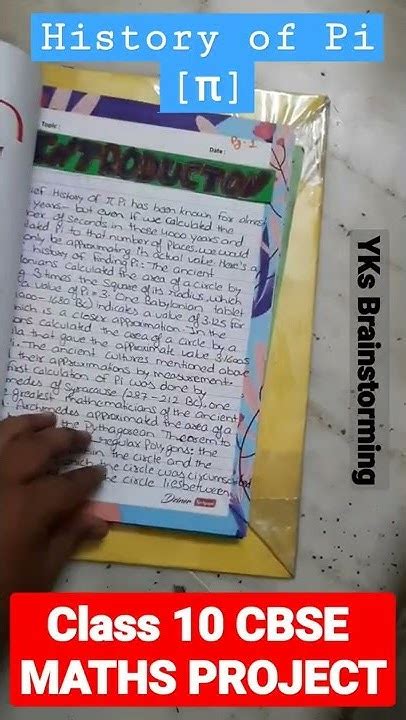 History of Pi
[π]
Topic :
Date :
Pg-1
INTRODUCTON
History of π Pi has been known for almost
years- but even if we calculated the
of seconds in those 4000 years and
Pi to that number of places, we would
only be approximating its actual value. Here's a
history of finding Pi: The ancient
calculated the area of a circle by
3 times the square of its radius, which
a value of Pi = 3. One Babylonian tablet
1680 BC) indicates a value of 3.125 for
which is a closer approximation. In the
calculated the area of a circle by a
that gave the approximate value 3.1605
The ancient cultures mentioned above
their approximations by measurement.
first calculation of Pi was done by
of Syracuse (287-212 BC), one
greatest mathematicians of the ancient
Archimedes approximated the area of a
the Pythagorean Theorem to
Regular Polygons: the
within the circle and the
which the circle was circumscribed
the circle lies between
YKs Brainstorming
Class 10 CBSE
MATHS PROJECT